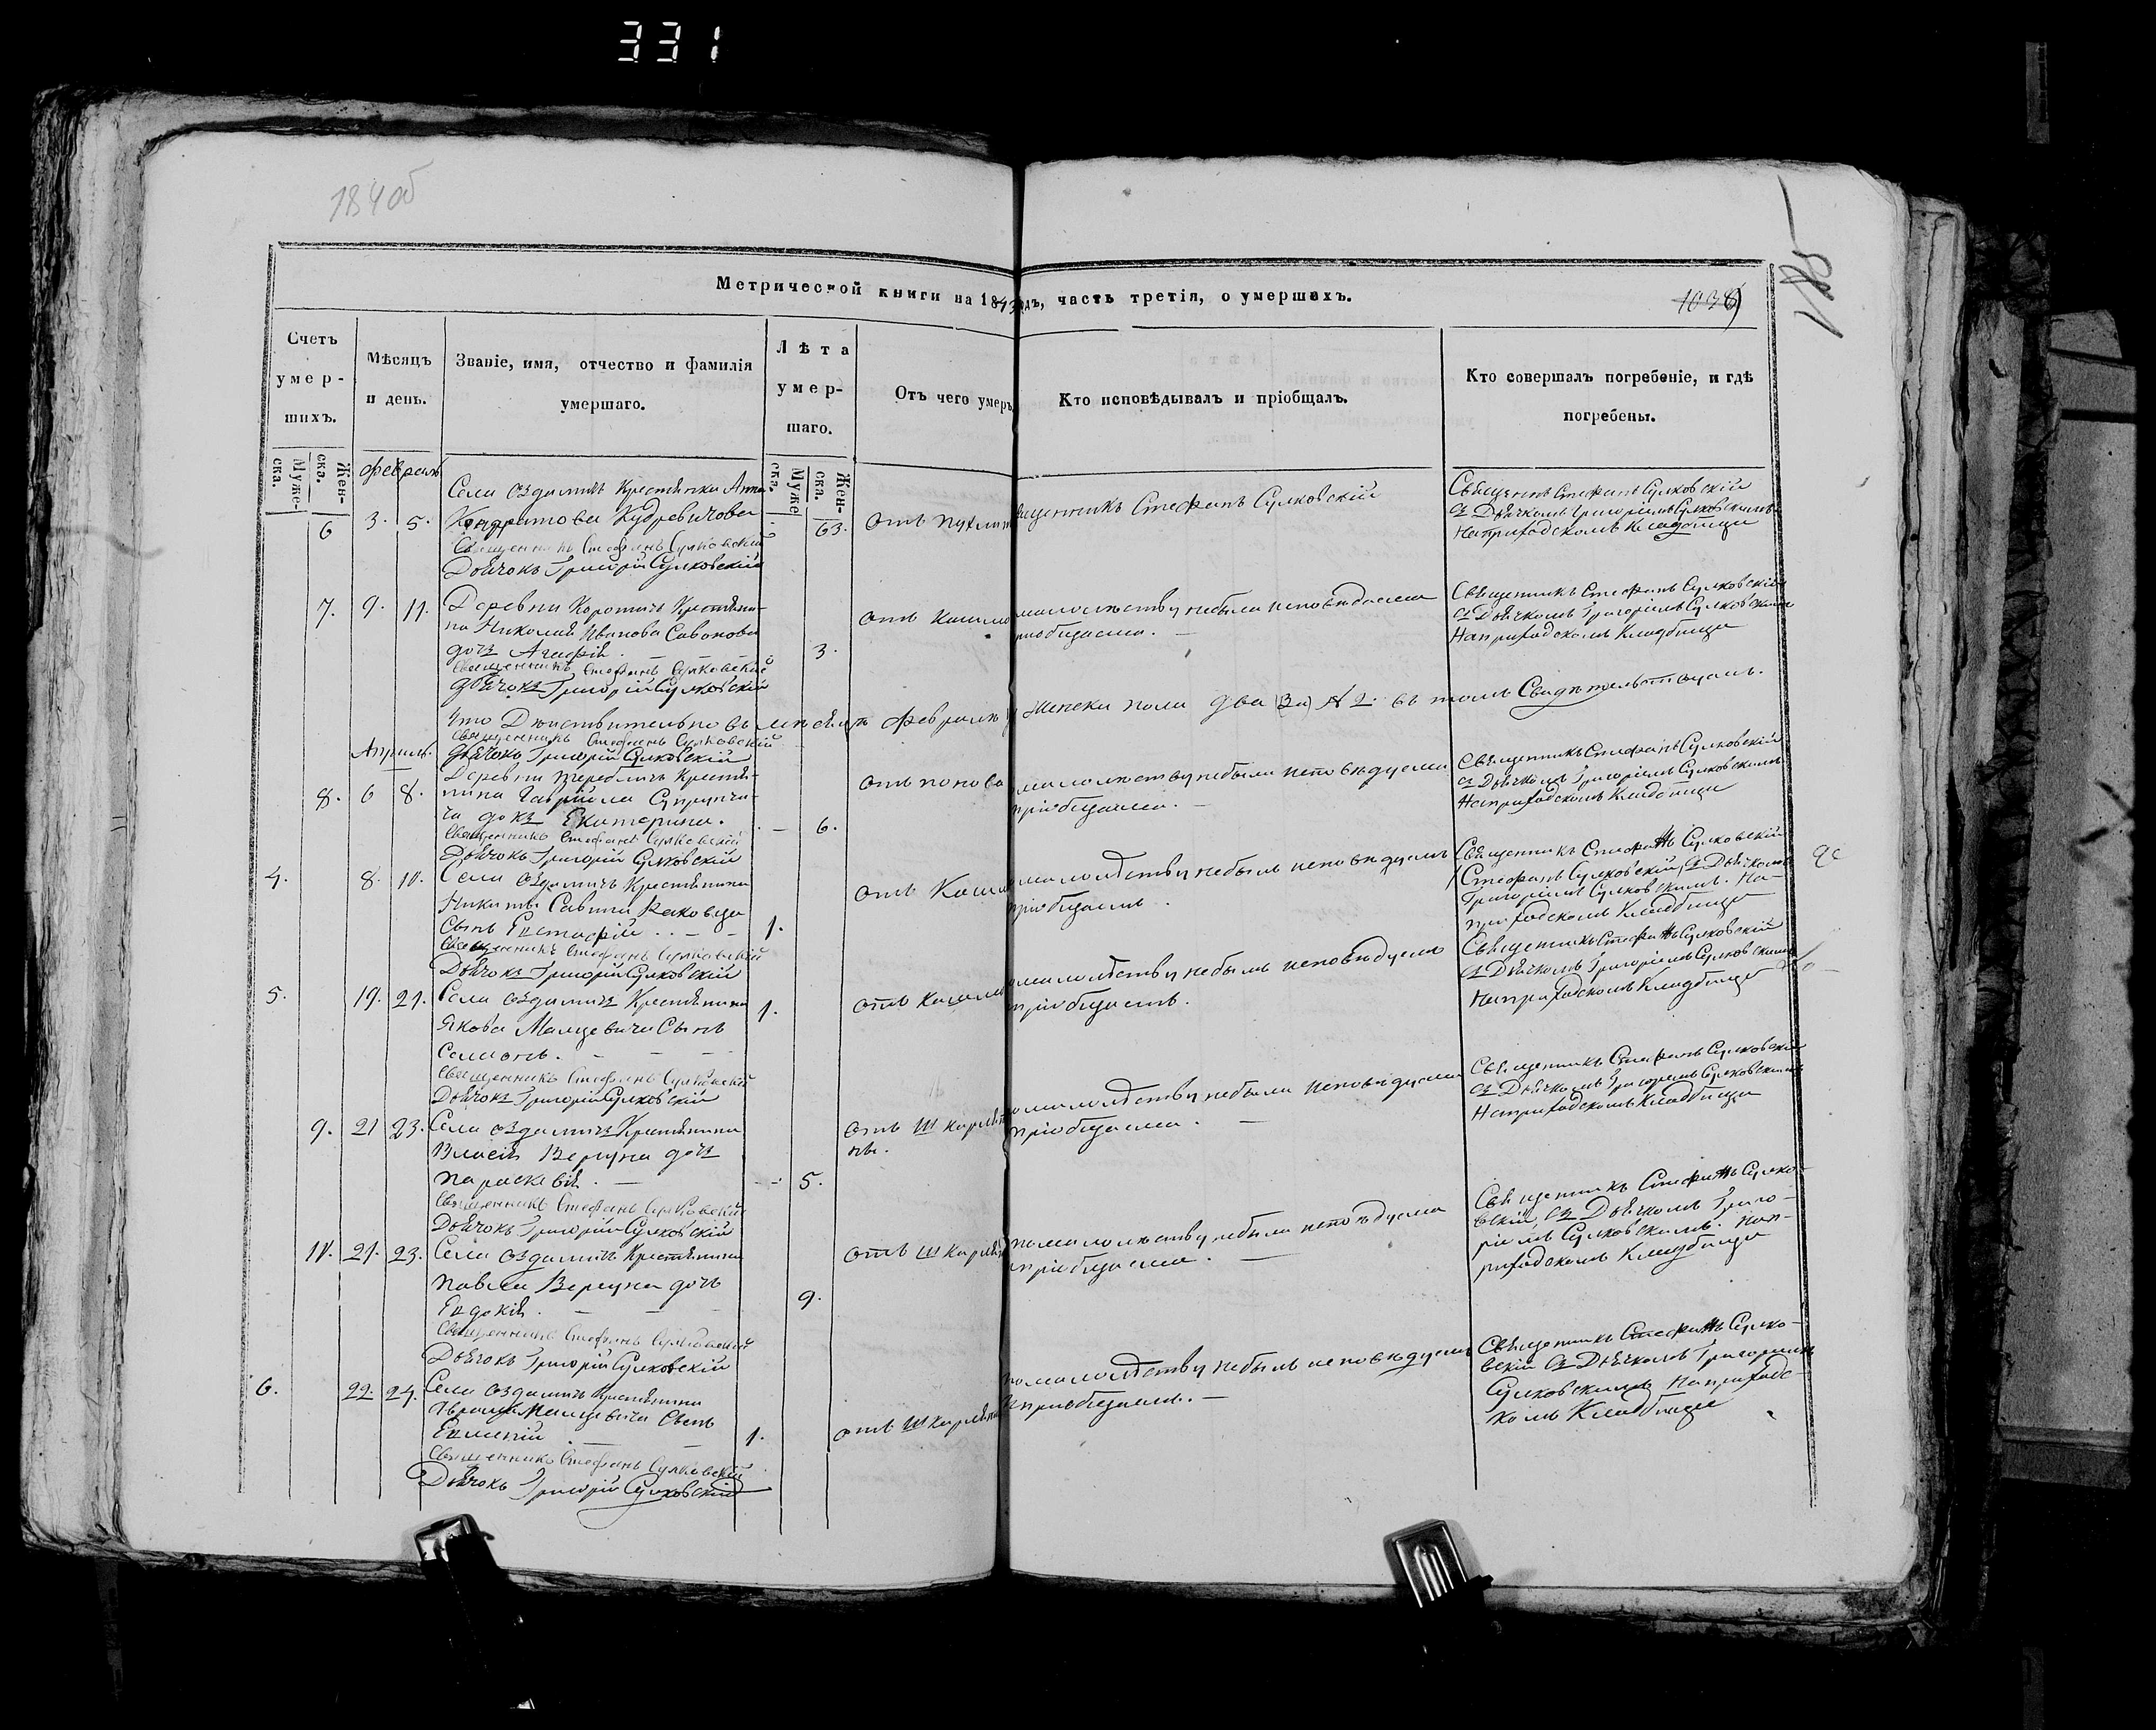 331
184об
185
Метрической книги на 1843 годъ, часть третія, о умершихъ.
1038
Счетъ умершихъ.
Мѣсяцъ и день.
Званіе, имя, отчество и фамилія умершаго.
Лѣта умершаго.
Отъ чего умеръ
Кто исповѣдывалъ и пріобщалъ.
Кто совершалъ погребеніе, и гдѣ погребены.
Мужеска.
Женска.
Мужеска.
Женска.
Февраль
Села Оздамичъ Крестьянка Анна
6 3. 5. Кондратова Кудревичова 63.
Священникъ Стефанъ Сулковскій
Дьячокъ Григорій Сулковскій
священникъ Стефанъ Сулковскій
Священникъ Стефанъ Сулковскій
съ Дьячкомъ Григоріемъ Сулковскимъ
На приходскомъ кладбищи
7. 9. 11. Деревни Коротичъ Крестьяни-
на Николая Иванова
дочь Агафія 3.
Священникъ Стефанъ Сулковскій
Дьячокъ Григорій Сулковскій
малолѣтству небыла исповѣдуема
пріобщаема.
Священникъ Стефанъ Сулковскій
съ Дьячкомъ Григоріемъ Сулковскимъ
На приходскомъ Кладбищи
Что Дѣйствительно въ мѣсяцѣ февралѣ Женска пола два (2а) №2. въ томъ Свидѣтельствуемъ.
Священникъ Стефанъ Сулковскій
Апрель. Дьячокъ Григорій Сулковскій
Деревни Теребличъ Крестья-
8. 6 8. нина Гавріила
дочь Екатерина. 6.
Священникъ Стефанъ Сулковскій
Дьячокъ Григорій Сулковскій
малолѣтству небыла исповѣдуема
пріобщаема.
Священникъ Стефанъ Сулковскій
съ Дьячкомъ Григоріемъ Сулковскимъ
На приходскомъ Кладбищи
4. 8. 10. Села Оздамичъ Крестьянина
Никиты Савина Раковца
Сынъ Евстафій 1.
Священникъ Стефанъ Сулковскій
Дьячокъ Григорій Сулковскій
отъ Кашля
малолѣтству небылъ исповѣдуемъ
пріобщаемъ.
Священникъ Стефанъ Сулковскій
(Стефанъ Сулковскій) съ Дьячкомъ
Григоріемъ Сулковскимъ. На-
приходскомъ Кладбищи
5. 19. 21. Села Оздамичъ Крестьянина 1.
Якова Малцевича Сынъ
Семіонъ.
Священникъ Стефанъ Сулковскій
Дьячокъ Григорій Сулковскій
отъ Кашля
малолѣтству небылъ исповѣдуемъ
пріобщаемъ.
Священникъ Стефанъ Сулковскій
съ Дьячкомъ Григоріемъ Сулковскимъ
На приходскомъ Кладбищи
9. 21 23. Села Оздамичъ Крестьянина
Власія Вергуна дочь
Параскевія. 5.
Священникъ Стефанъ Сулковскій
Дьячокъ Григорій Сулковскій
отъ Шкарлати-
ны.
малолѣтству небыла исповѣдуема
пріобщаема.
Священникъ Стефанъ Сулковскій
съ Дьячкомъ Григоріемъ Сулковскимъ
На приходскомъ Кладбищи
10. 21. 23. Села Оздамичъ Крестьянина
Павла Вергуна дочь
Евдокія. 9.
Священникъ Стефанъ Сулковскій
Дьячокъ Григорій Сулковскій
помалолѣтству небыла исповѣдуема
пріобщаема.
Священникъ Стефанъ Сулко-
вскій, съ Дьячкомъ Григо-
ріемъ Сулковскимъ. Нап-
риходскомъ Кладбищи
6. 22. 24. Села Оздамичъ Крестьянина
Малцевича Сынъ
Евменій 1.
Священникъ Стефанъ Сулковскій
Дьячокъ Григорій Сулковскій
помалолѣтству небылъ исповѣдуемъ
и пріобщаемъ.
Священникъ Стефанъ Сулко-
вскій съ Дьячкомъ Григоріемъ
Сулковскимъ На приходс-
комъ Кладбищи